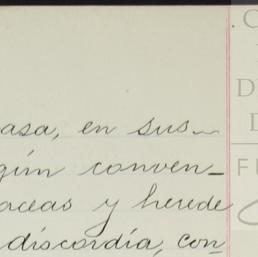 asa, en sus
gún conven_
aceas y herede
discordia, con